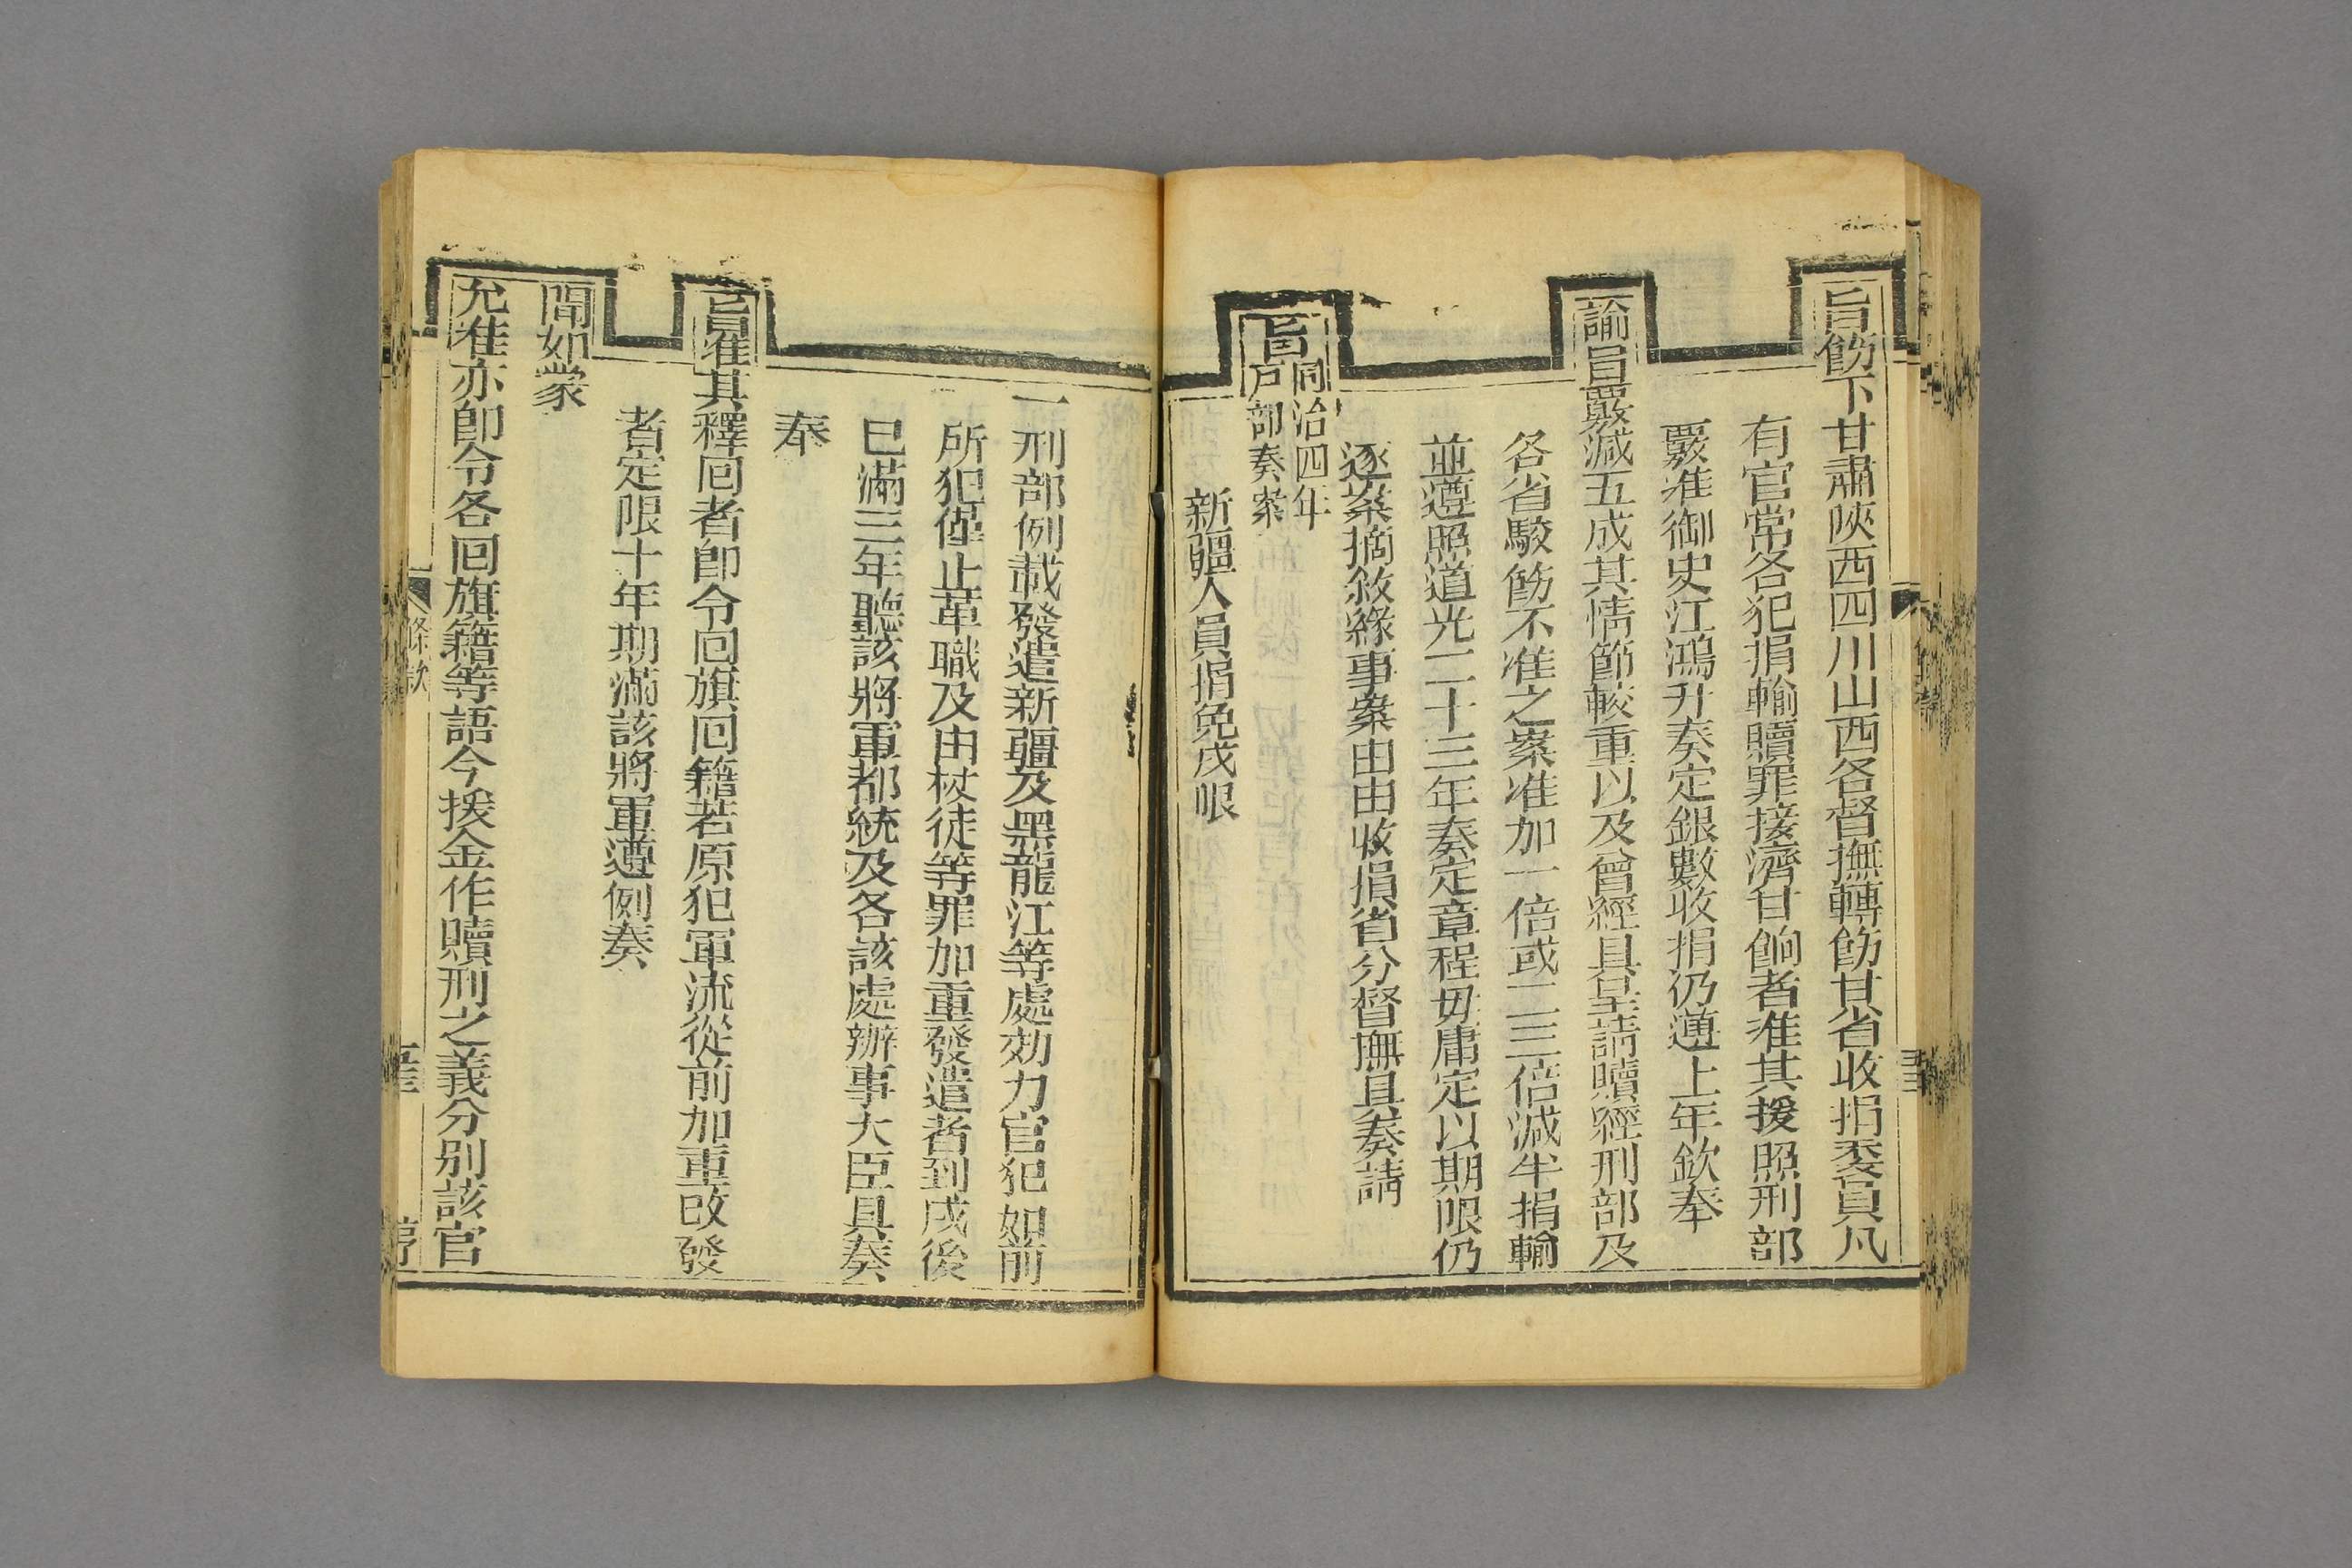 旨飭下甘肅陝西四川山西各督撫轉飭甘省收捐委員凡
有官常各犯捐輸贖罪接濟甘餉者准其援照刑部
覈准御史江鴻升奏定銀數收捐仍遵上年欽奉
諭旨覈減五成其情節較重以及曾經具呈請贖經刑部及
各省駮飭不准之案准加一倍或二三倍減半捐輸
並遵照道光二十三年奏定章程毋庸定以期限仍
逐案摘敘緣事案由由收捐省分督撫具奏請
旨同治四年
戶部奏案
新疆人員捐免戍限
一刑部例載發遣新疆及黑龍江等處効力官犯如前
所犯僅止革職及由杖徒等罪加重發遣者到戍後
已滿三年聽該將軍都統及各該處辦事大臣具奏
奉
旨准其釋回者卽令回旗回籍若原犯軍流從前加重改發
者定限十年期滿該將軍遵例奏
聞如蒙
允准亦卽令各回旗籍等語今援金作贖刑之義分別該官
條款